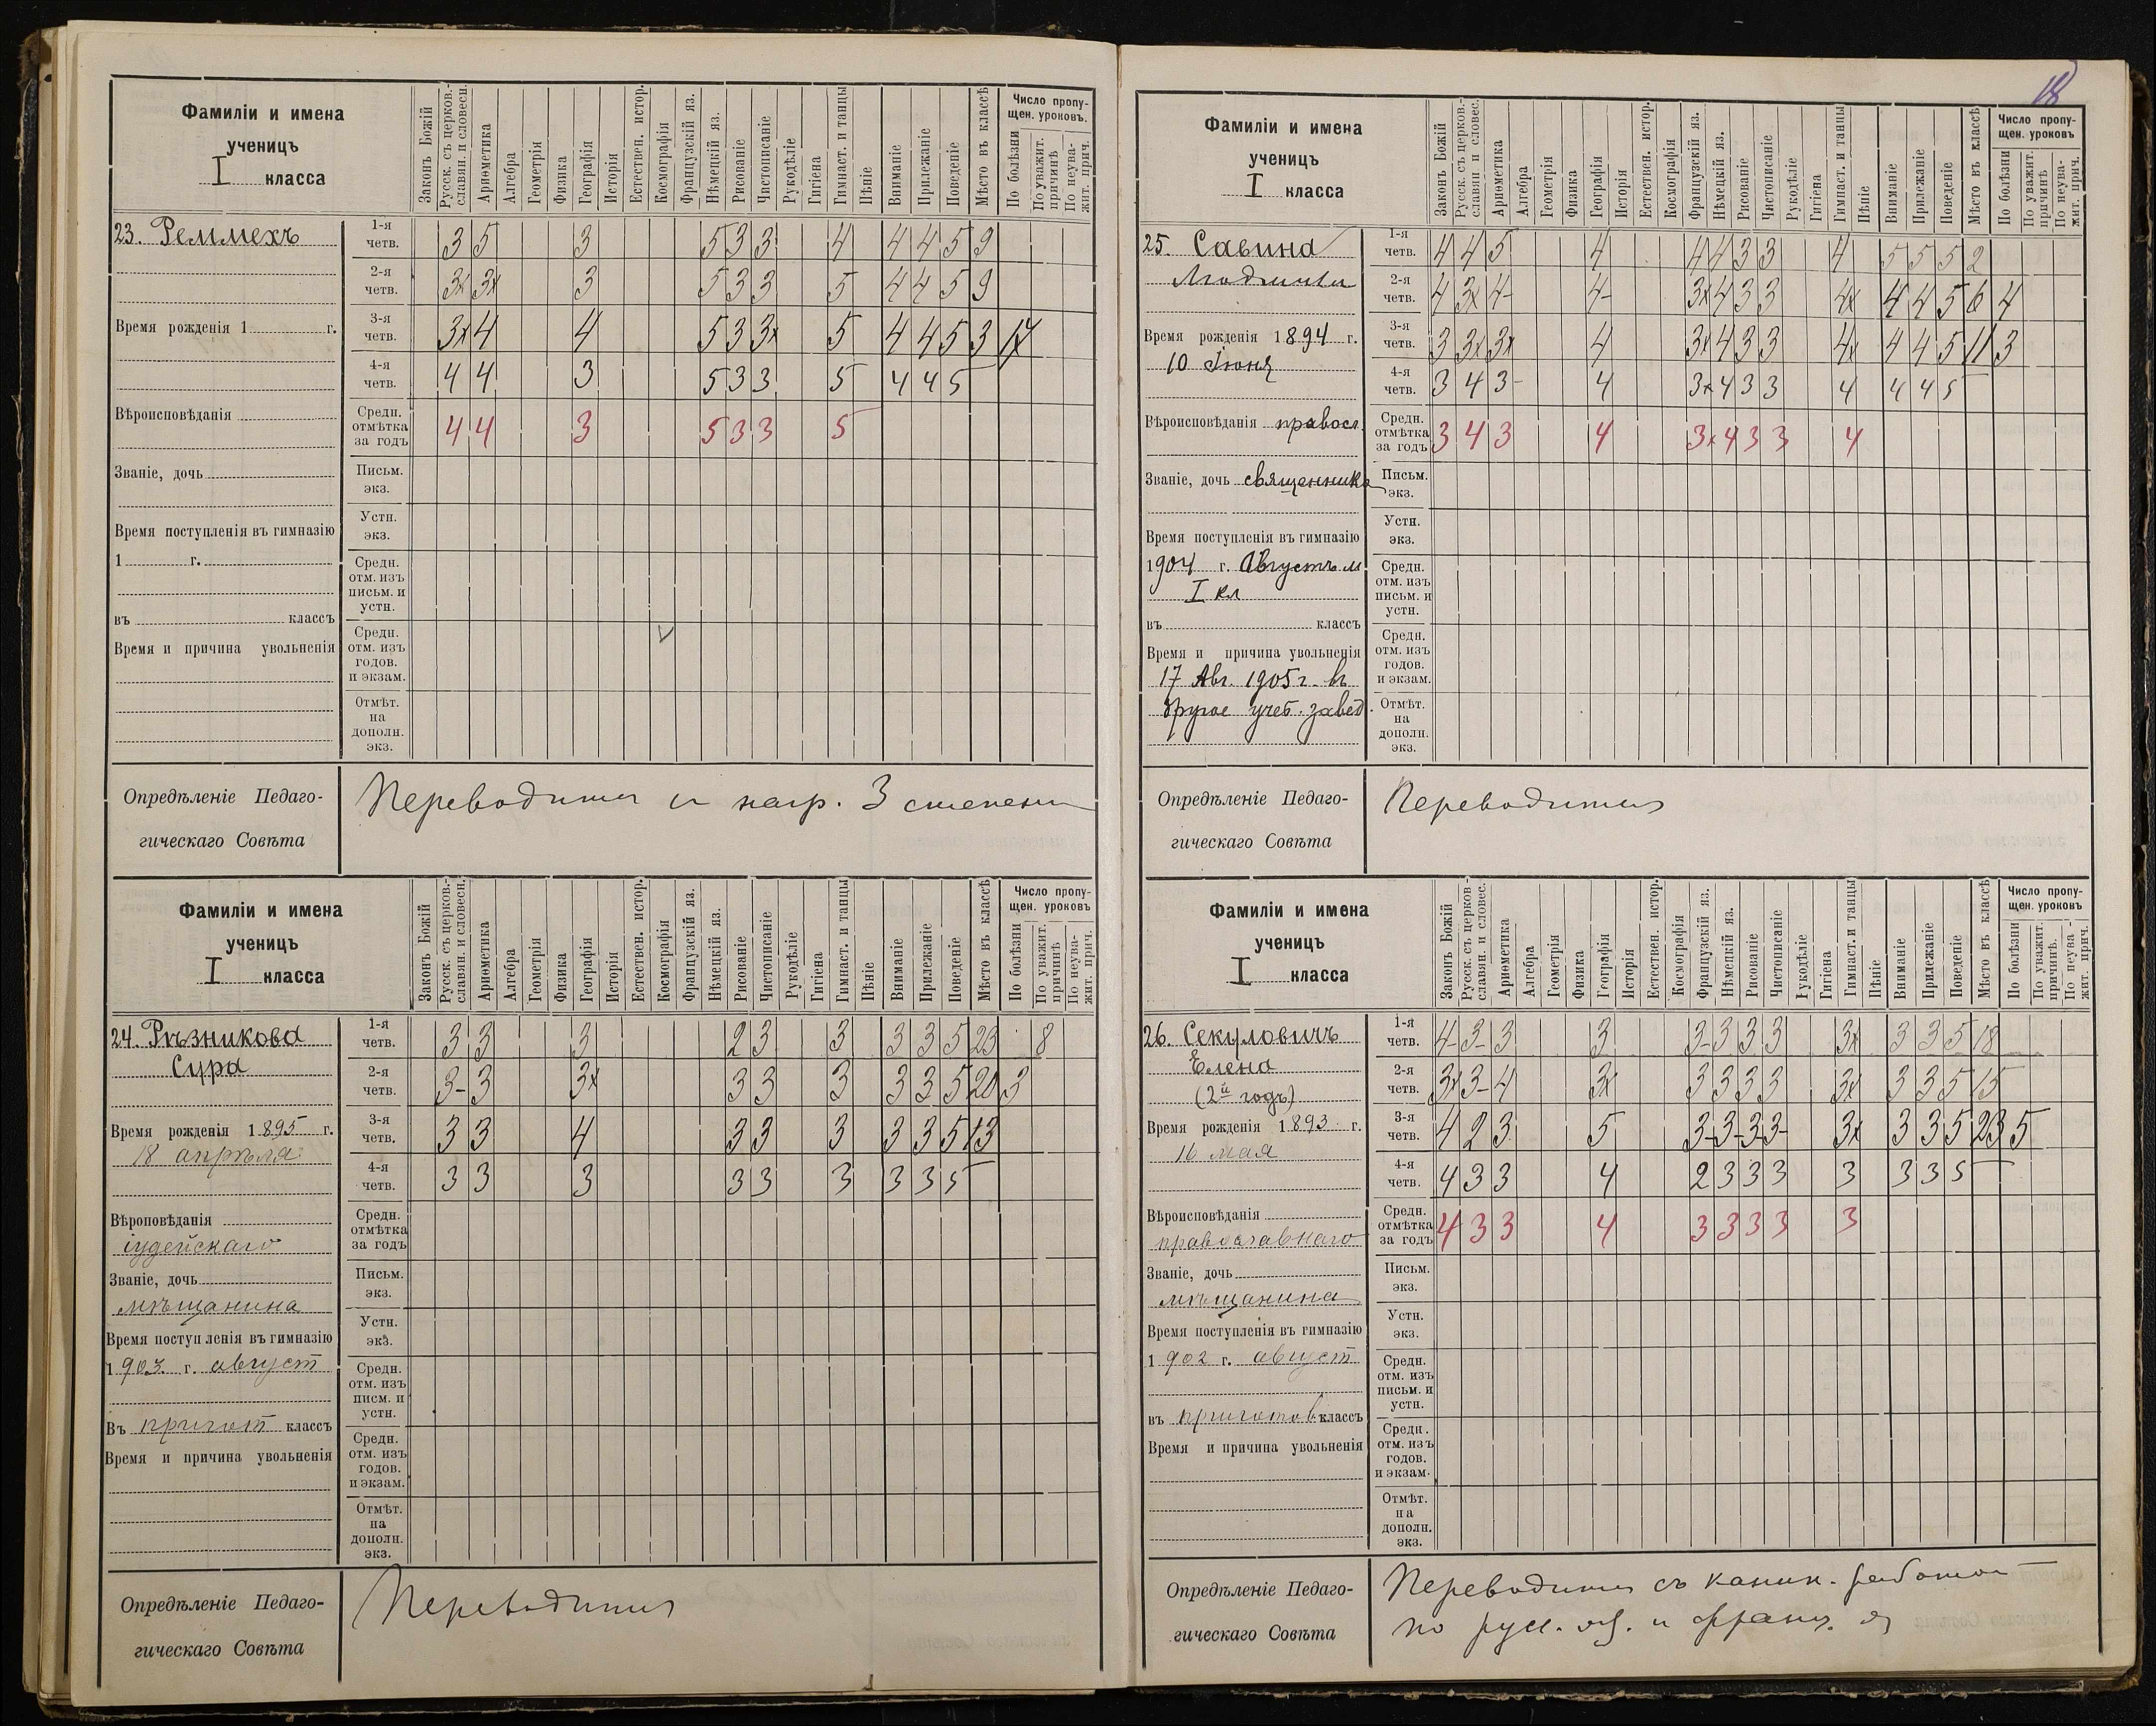 Фамиліи и имена
ученицъ
I класса
Законъ Божій
Русск. съ церков.-
славян. и словесн.
Ариѳметика
Алгебра
Геометрія
Физика
Географія
Исторія
Естествен. истор.
Космографія
Французскій яз.
Нѣмецкій яз.
Рисованіе
Чистописаніе
Рукодѣліе
Гигіена
Гимнаст. и танцы
Пѣніе
Вниманіе
Прилежаніе
Поведеніе
Мѣсто въ классѣ
Число пропу-
щен. уроковъ.
По болѣзни
По уважит.
причинѣ
По неува-
жит. прич.
23. Реммехъ
Время рожденія 1 г.
Вѣроисповѣданія
Званіе, дочь
Время поступленія въ гимназію
1 г.
въ классъ
Время и причина увольненія
1-я четв. 3 5 3 5 3 3 4 4 4 5 9
2-я четв. 3х 3х 3 5 3 3 5 4 4 5 9
3-я четв. 3х 4 4 5 3 3х 5 4 4 5 3
4-я четв. 4 4 3 5 3 3 5 4 4 5
Средн. отмѣтка за годъ 4 4 3 5 3 3 5
Письм. экз.
Устн. экз.
Средн. отм. изъ письм. и устн.
Средн. отм. изъ годов. и экзам.
Отмѣт. на дополн. экз.
Опредѣленіе Педаго-
гическаго Совѣта
Переводится съ нагр. 3 степени
Фамиліи и имена
ученицъ
I класса
Законъ Божій
Русск. съ церков.-
славян. и словесн.
Ариѳметика
Алгебра
Геометрія
Физика
Географія
Исторія
Естествен. истор.
Космографія
Французскій яз.
Нѣмецкій яз.
Рисованіе
Чистописаніе
Рукодѣліе
Гигіена
Гимнаст. и танцы
Пѣніе
Вниманіе
Прилежаніе
Поведеніе
Мѣсто въ классѣ
Число пропу-
щен. уроковъ
По болѣзни
По уважит.
причинѣ
По неува-
жит. прич.
24. Рѣзникова
Сура
Время рожденія 1895 г.
18 апрѣля
Вѣроповѣданія
іудейскаго
Званіе, дочь
мѣщанина
Время поступленія въ гимназію
1903 г. август
Въ пригот классъ
Время и причина увольненія
1-я четв. 3 3 3 2 3 3 3 3 5 23 8
2-я четв. 3- 3 3х 3 3 3 3 3 5 20 3
3-я четв. 3 3 4 3 3 3 3 3 5 13
4-я четв. 3 3 3 3 3 3 3 3 5
Средн. отмѣтка за годъ
Письм. экз.
Устн. экз.
Средн. отм. изъ писм. и устн.
Средн. отм. изъ годов. и экзам.
Отмѣт. на дополн. экз.
Опредѣленіе Педаго-
гическаго Совѣта
Переводится
18
Фамиліи и имена
ученицъ
I класса
Законъ Божій
Русск. съ церков.-
славян и словес.
Ариѳметика
Алгебра
Геометрія
Физика
Географія
Исторія
Естествен. истор.
Космографія
Французскій яз.
Нѣмецкій яз.
Рисованіе
Чистописаніе
Рукодѣліе
Гигіена
Гимнаст. и танцы
Пѣніе
Вниманіе
Прилежаніе
Поведеніе
Мѣсто въ классѣ
Число пропу-
щен. уроковъ
По болѣзни
По уважит.
причинѣ
По неува-
жит. прич.
25. Савина
Людмила
Время рожденія 1894 г.
10 Іюня
Вѣроисповѣданія правосл.
Званіе, дочь священника
Время поступленія въ гимназію
1904 г. Августъ м
I кл
въ классъ
Время и причина увольненія
17 Авг. 1905 г. въ
другое учеб. завед.
1-я четв. 4 4 5 4 4 4 3 3 4 5 5 5 2
2-я четв. 4 3х 4- 4- 3х 4 3 3 4х 4 4 5 6 4
3-я четв. 3 3х 3х 4 3х 4 3 3 4х 4 4 5 11 3
4-я четв. 3 4 3- 4 3х 4 3 3 4 4 4 5
Средн. отмѣтка за годъ 3 4 3 4 3х 4 3 3 4
Письм. экз.
Устн. экз.
Средн. отм. изъ письм. и устн.
Средн. отм. изъ годов. и экзам.
Отмѣт. на дополн. экз.
Опредѣленіе Педаго-
гическаго Совѣта
Переводится
Фамиліи и имена
ученицъ
I класса
Законъ Божій
Русск. съ церков-
славян. и словес.
Ариѳметика
Алгебра
Геометрія
Физика
Географія
Исторія
Естествен. истор.
Космографія
Французскій яз.
Нѣмецкій яз.
Рисованіе
Чистописаніе
Рукодѣліе
Гигіена
Гимнаст. и танцы
Пѣніе
Вниманіе
Прилежаніе
Поведеніе
Мѣсто въ классѣ
Число пропу-
щен. уроковъ
По болѣзни
По уважит.
причинѣ.
По неува-
жит. прич.
26. Секуловичъ
Елена
(2й годъ)
Время рожденія 1893 г.
16 мая
Вѣроисповѣданія
православнаго
Званіе, дочь
мѣщанина
Время поступленія въ гимназію
1902 г. август
въ приготов классъ
Время и причина увольненія
1-я четв. 4- 3- 3 3 3- 3 3 3 3х 3 3 5 18
2-я четв. 3х 3- 4 3х 3 3 3 3 3х 3 3 5 15
3-я четв. 4 2 3 5 3- 3- 3- 3- 3х 3 3 5 23 5
4-я четв. 4 3 3 4 2 3 3 3 3 3 3 5
Средн. отмѣтка за годъ 4 3 3 4 3 3 3 3 3
Письм. экз.
Устн. экз.
Средн. отм. изъ письм. и устн.
Средн. отм. изъ годов. и экзам.
Отмѣт. на дополн. экз.
Опредѣленіе Педаго-
гическаго Совѣта
Переводится съ каник. работой
по русс. яз. и франц. яз